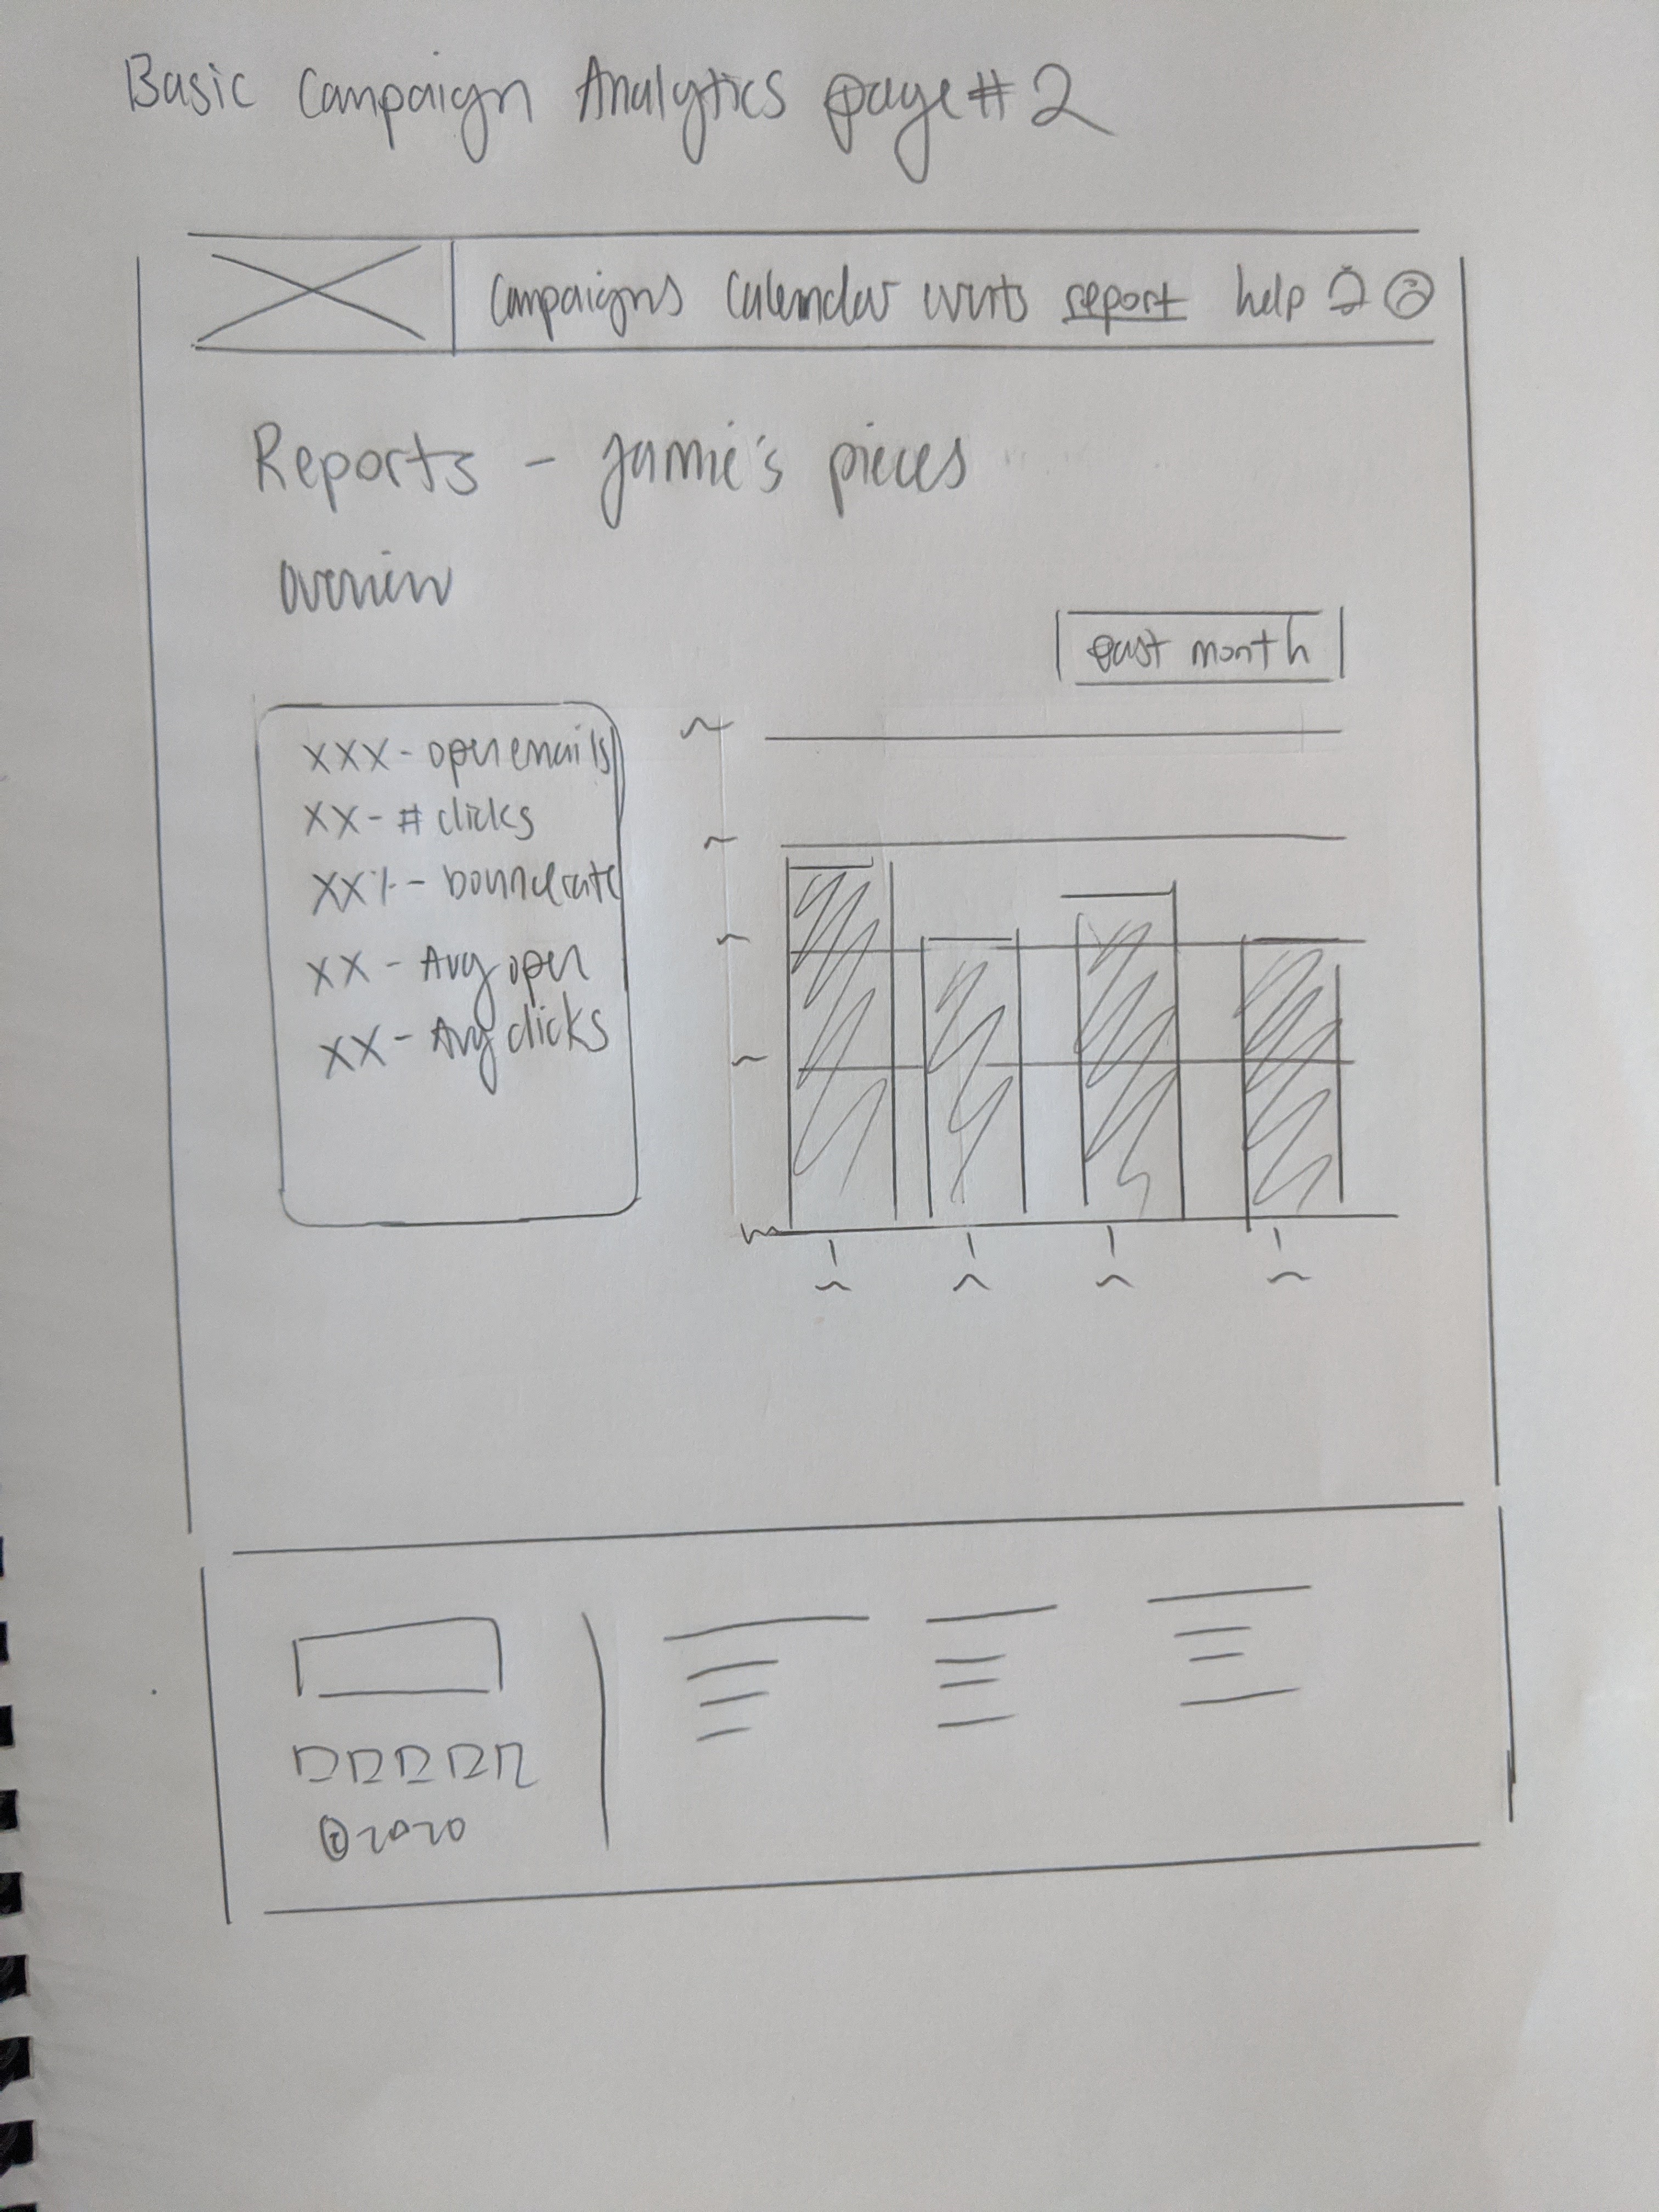 Basic Campaign Analytics page #2
Campaigns Calendar events report help
Reports - Jamie's pieces
Overview
past month
XXX - open emails
XX - # clicks
XX% - bounce rate
XX - Avg open
XX - Avg clicks
©2020